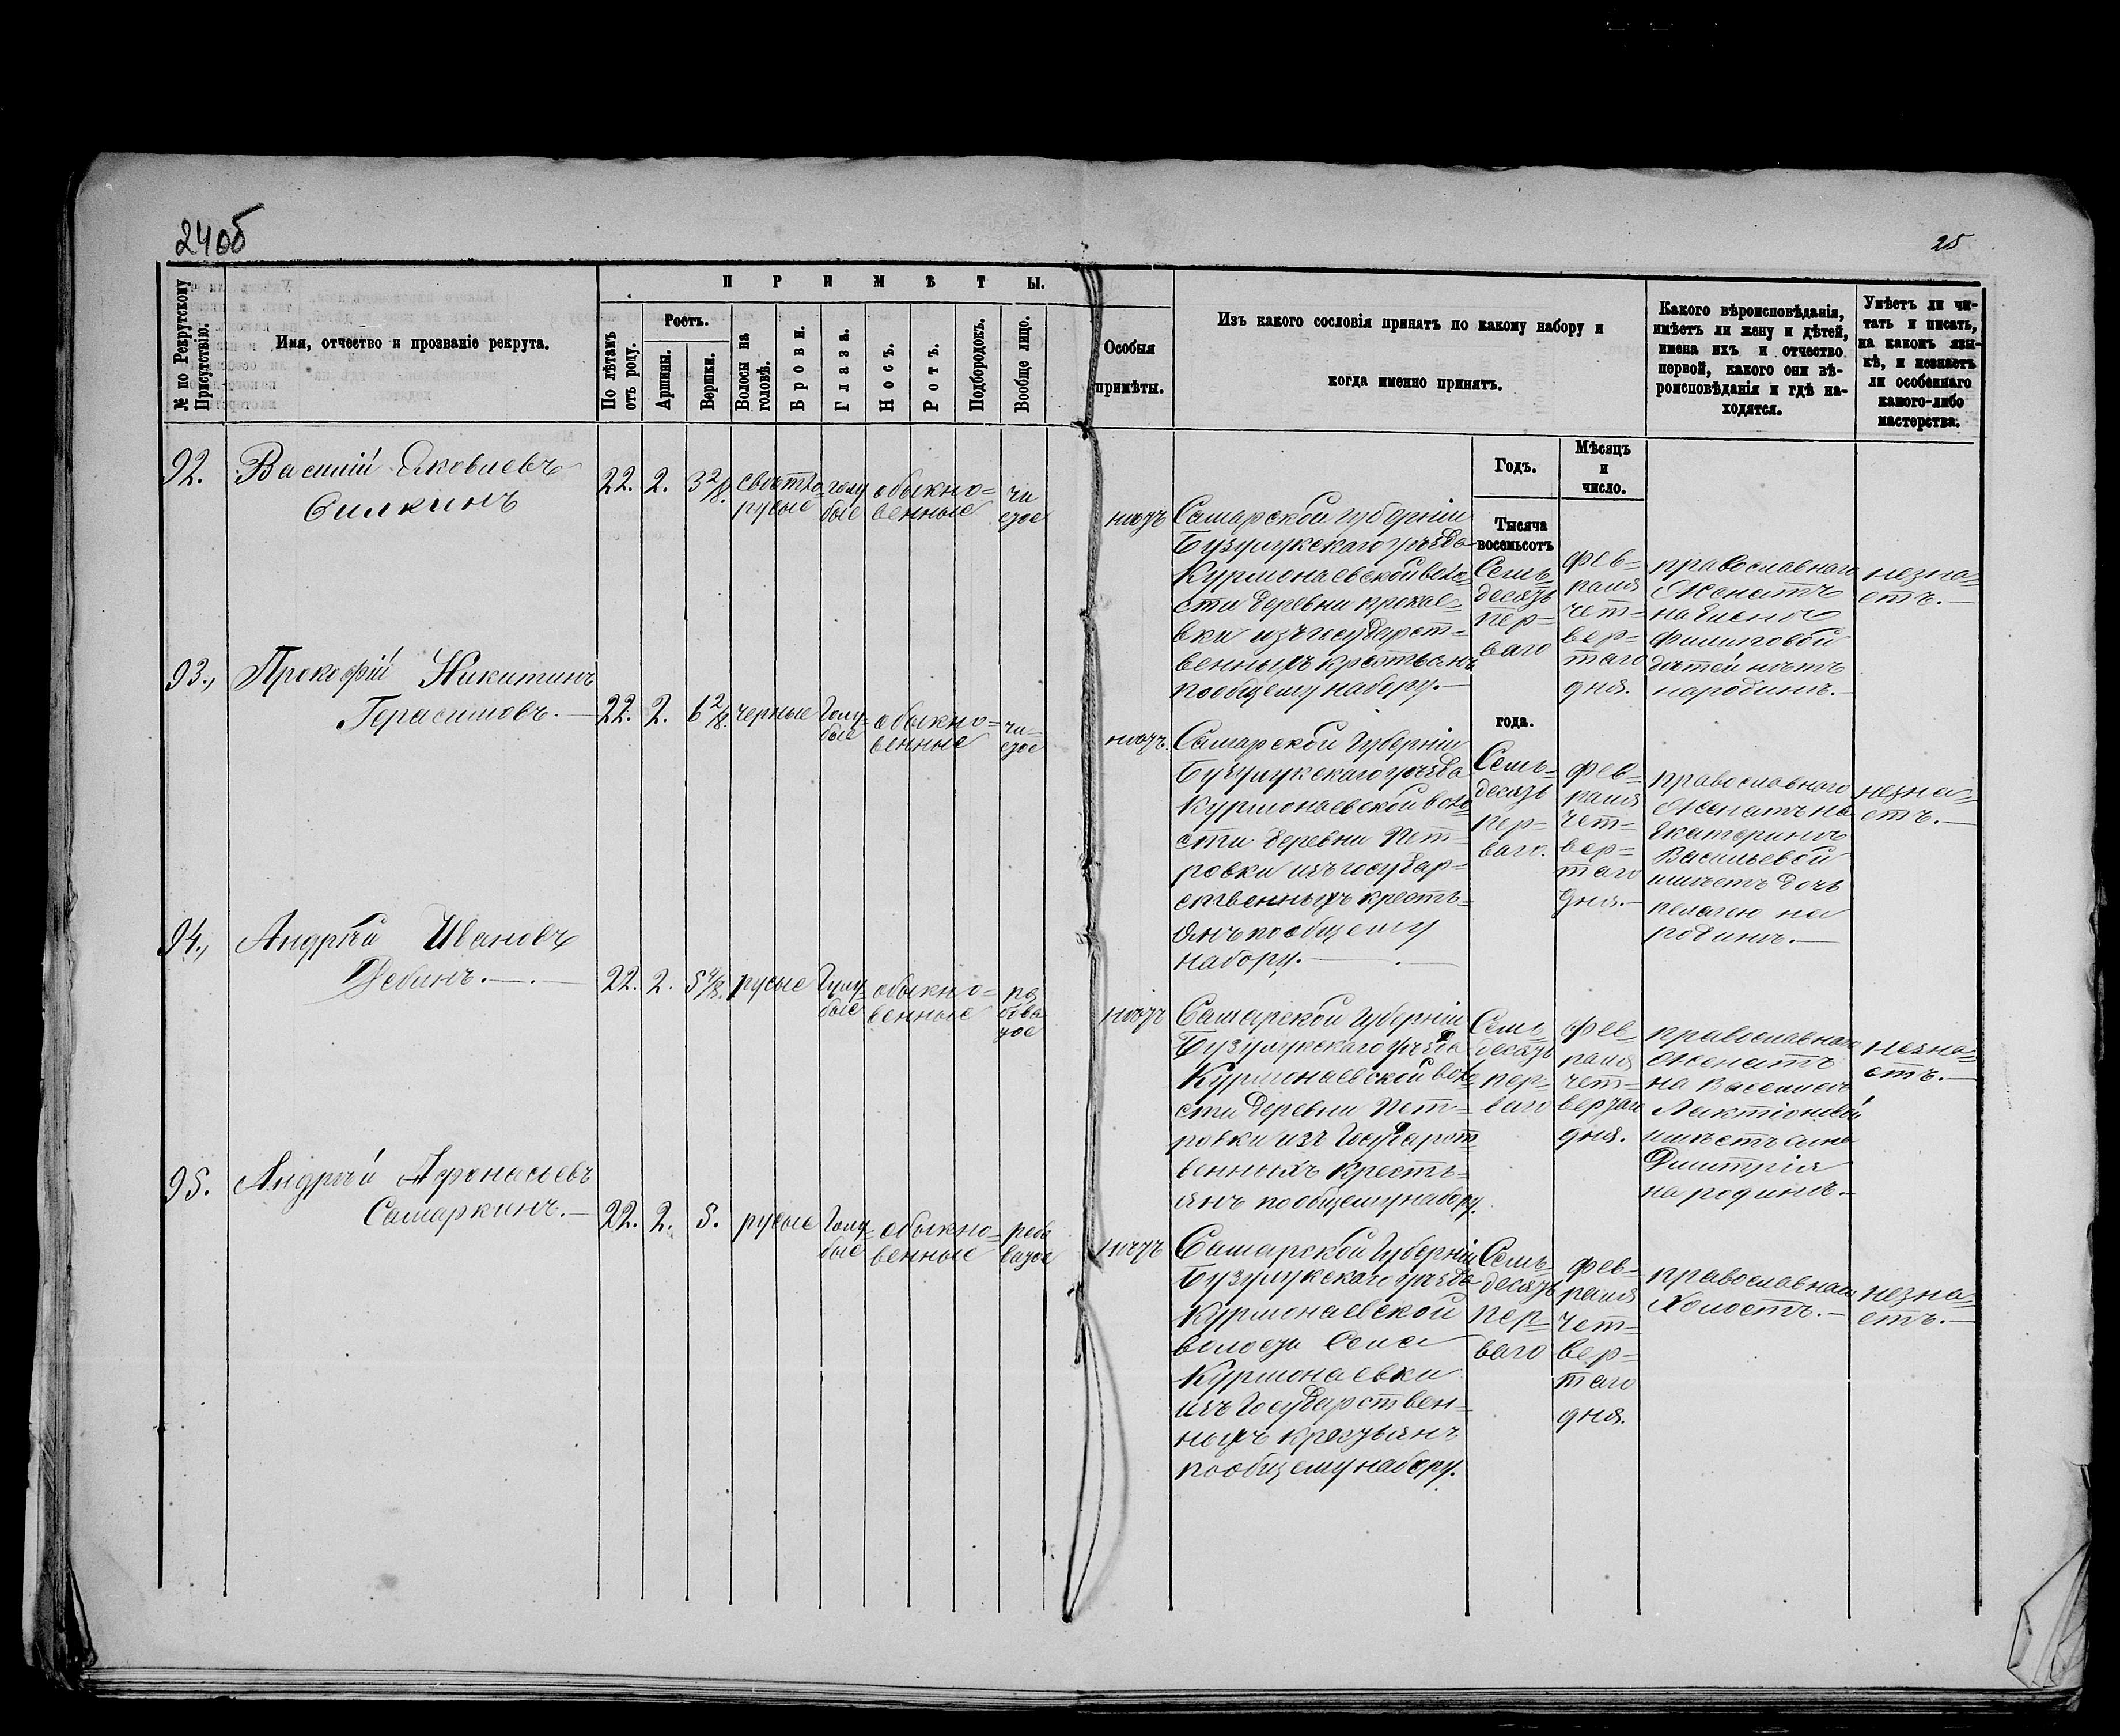 24об
25
№ по Рекрутскому
Присутствію.
Имя, отчество и прозваніе рекрута.
ПРИМѢТЫ.
По лѣтамъ
отъ роду.
Ростъ.
Аршины.
Вершки.
Волосы на
головѣ.
Брови.
Глаза.
Носъ.
Ротъ.
Подбородокъ.
Вообще лицо.
Особыя
примѣты.
Изъ какого сословія принятъ по какому набору и
когда именно принятъ.
Какого вѣроисповѣданія,
имѣетъ ли жену и дѣтей,
имена ихъ и отчество
первой, какого они вѣ-
роисповѣданія и гдѣ на-
ходятся.
Умѣетъ ли чи-
тать и писать,
на какомъ язы-
кѣ, и незнаетъ
ли особеннаго
какого-либо
мастерства.
Годъ.
Мѣсяцъ
и
число.
Тысяча
восемьсотъ
92.
Василій Яковлевъ
Силкинъ
22.
2.
3 2/8.
свѣтло-
русые
голу
бые
обыкно=
венные
чи
стое
нѣтъ
Самарской губерніи
Бузулукскаго уѣзда
Курманаевской воло
сти деревни
вки изъ государст=
венныхъ крестьянъ
по общему набору.—
Семь=
десятъ
пер=
ваго
фев=
раля
чет=
вер=
таго
дня.
православнаго
женатъ
на Еленѣ
Филиповой
дѣтей нѣтъ
на родинѣ.—
незна=
етъ.—
93.,
Прокофій Никитинъ
Герасимовъ.—
22.
2.
6 2/8.
черные
голу=
бые
обыкно=
венные
чи=
стое
нѣтъ.
Самарской Губерніи
Бузулукскаго уѣзда
Курманаевской воло
сти деревни Пет=
ровки изъ государ=
ственныхъ кресть=
янъ по общему
набору.—
года.
Семь=
десятъ
пер=
ваго.
фев=
раля
чет=
вер=
таго
дня.—
православнаго
женатъ на
Екатеринѣ
Васильевой
имѣетъ дочь
пелагею на
родинѣ.—
незна=
етъ.—
94.,
Андрѣй Ивановъ
22.
2.
5 4/8.
русые
Голу=
бые
обыкно=
венные
ря
бова
тое
нѣтъ
Самарской Губерніи
Бузулукскаго уѣзда
Курманаевской воло
сти деревни Пет=
ровки изъ Государст
венныхъ кресть=
янъ по общему набору.
Семь=
десятъ
пер=
ваго
фев=
раля
чет=
вертаго
дня.
православнаго
женатъ
на Василисѣ
Лактіоновой
имѣетъ сына
Дмитрія
на родинѣ.—
незна=
етъ.—
95.
Андрѣй Афонасьевъ
Самаркинъ.—
22.
2.
5.
русые
Голу=
бые
обыкно=
венные
рябо
ватое
нѣтъ
Самарской Губерніи
Бузулукскаго уѣзда
Курманаевской
волости Села
Курманаевки
изъ Государствен=
ныхъ крестьянъ
по общему набору.
Семь=
десятъ
пер=
ваго
фев=
раля
чет=
вер=
таго
дня.
православнаго
Холостъ.—
незна=
етъ.—